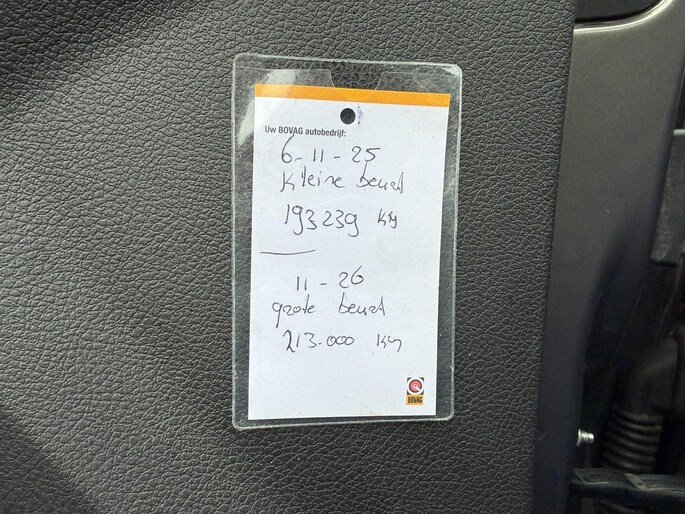 Uw BOVAG autobedrijf:
6-11-25
Kleine beurt
193239 km
11-26
grote beurt
213.000 km
BOVAG